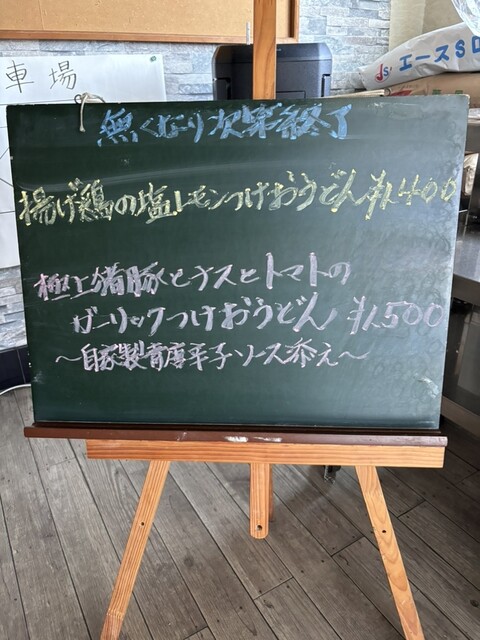 車場
エースSD
無くなり次第終了
揚げ鶏の塩レモンつけおうどん ¥1,400
極上猪豚とナスとトマトの
ガーリックつけおうどん ¥1,500
～自家製青唐辛子ソース添え～